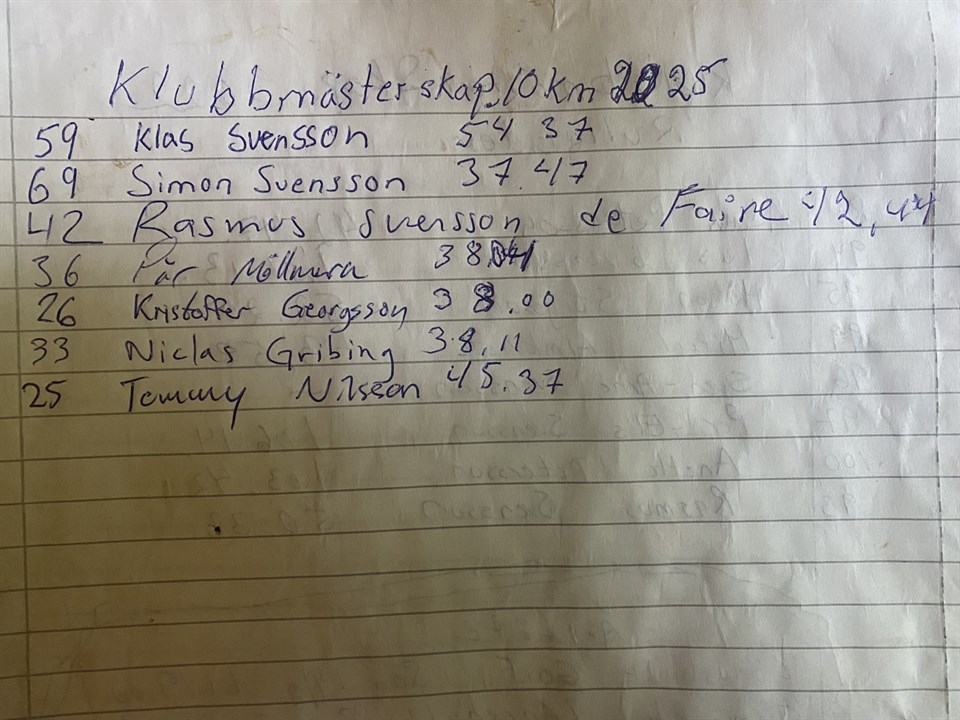 Klubbmästerskap 10 km 2025
59 Klas Svensson 54 37
69 Simon Svensson 37.47
42 Rasmus Svensson de Faire 42,44
36 Pär 38
26 Kristoffer Georgsson 38.00
33 Niclas Gribing 38,11
25 Tommy Nilsson 45.37